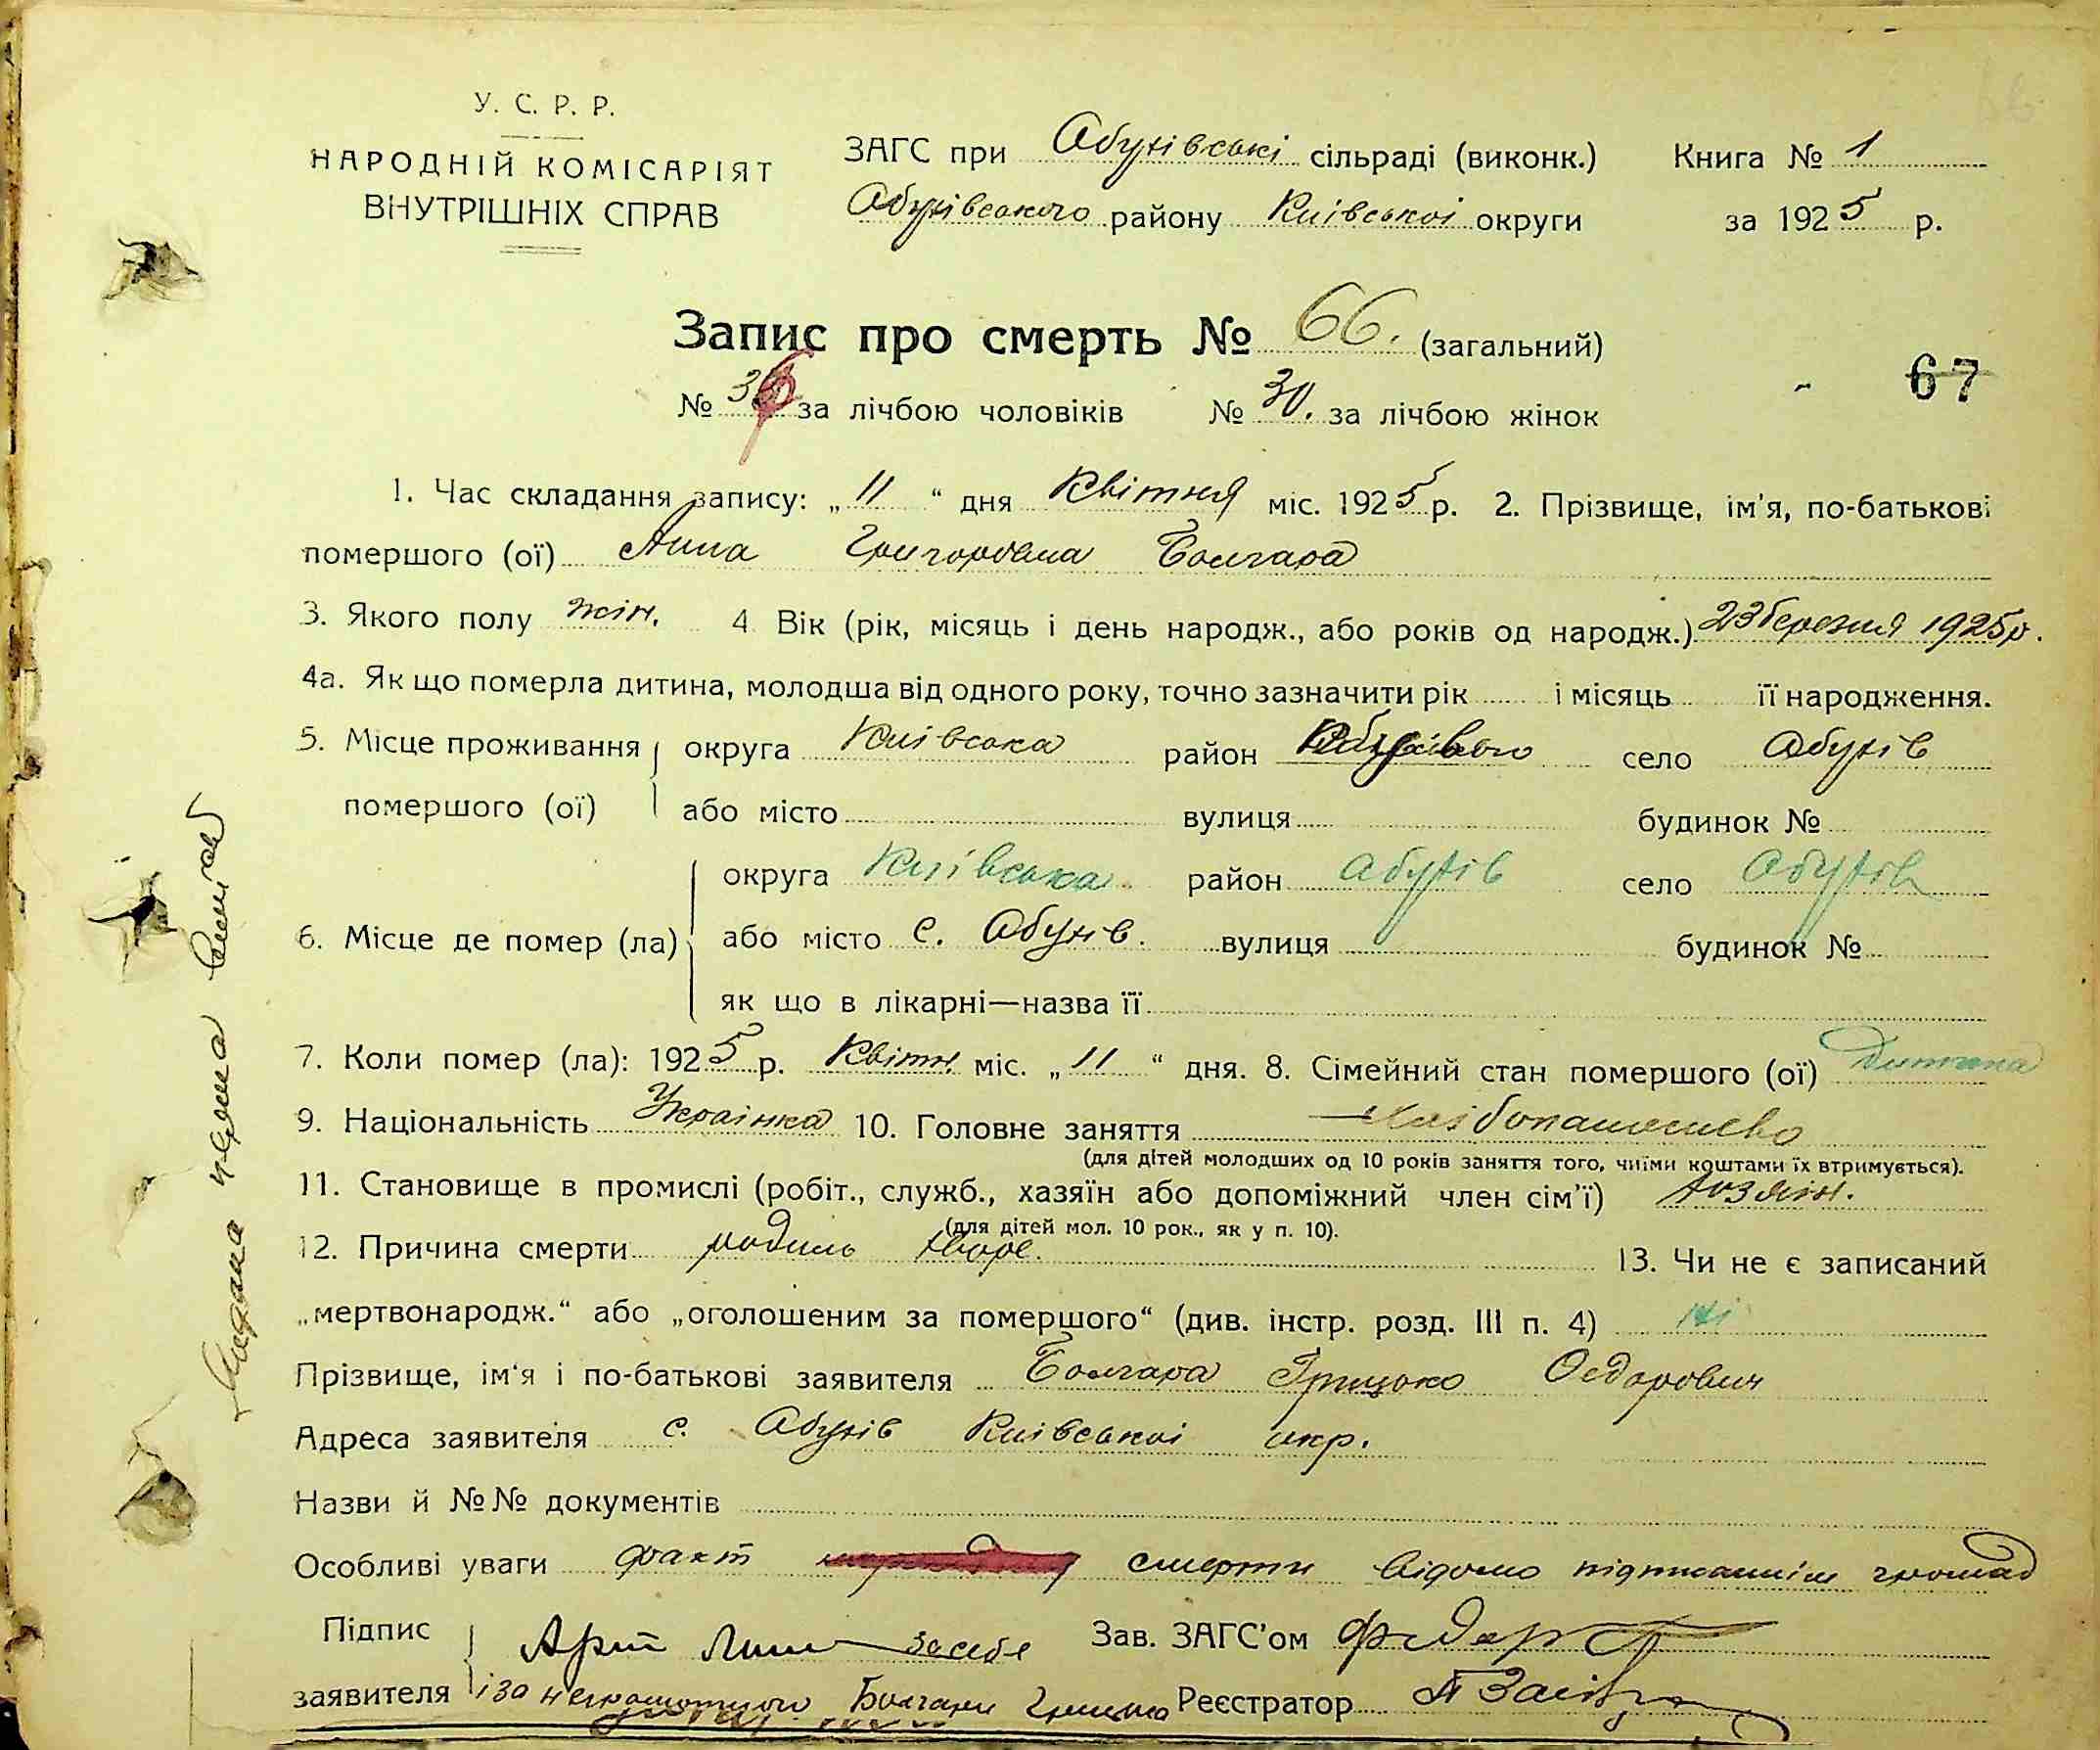 У. С. Р. Р.
НАРОДНІЙ КОМІСАРІЯТ
ВНУТРІШНІХ СПРАВ
ЗАГС при Обухівські сільраді (виконк.)
Обухівського району Київської округи
Книга № 1
за 1925 р.
Запис про смерть № 66. (загальний)
67
№ 36 за лічбою чоловіків № 30. за лічбою жінок
1. Час складання запису: „11“ дня Квітня міс. 1925 р. 2. Прізвище, ім'я, по-батькові
помершого (ої) Анна Григоровна Болгара
3. Якого полу жін. 4 Вік (рік, місяць і день народж., або років од народж.) 23 березня 1925 р.
4а. Як що померла дитина, молодша від одного року, точно зазначити рік і місяць її народження.
5. Місце проживання округа Київська район село Обухів
помершого (ої) або місто вулиця будинок №
округа Київська район Обухів село Обухів
6. Місце де помер (ла) або місто с. Обухів. вулиця будинок №
як що в лікарні—назва її
7. Коли помер (ла): 1925 р. Квітн. міс. „11“ дня. 8. Сімейний стан помершого (ої) Дитина
9. Національність Українка 10. Головне заняття
(для дітей молодших од 10 років заняття того, чиїми коштами їх втримується).
11. Становище в промислі (робіт., служб., хазяїн або допоміжний член сім'ї) хозяін.
(для дітей мол. 10 рок., як у п. 10).
12. Причина смерти хворе. 13. Чи не є записаний
„мертвонародж.“ або „оголошеним за помершого“ (див. інстр. розд. III п. 4) ні
Прізвище, ім'я і по-батькові заявителя Болгара Грицько Федорович
Адреса заявителя с. Обухів Київської окр.
Назви й №№ документів
Особливі уваги факт смерти відомо підписавшім громад
Підпис за себе Зав. ЗАГС'ом
заявителя і за неграмотного Болгари Грицька Реєстратор